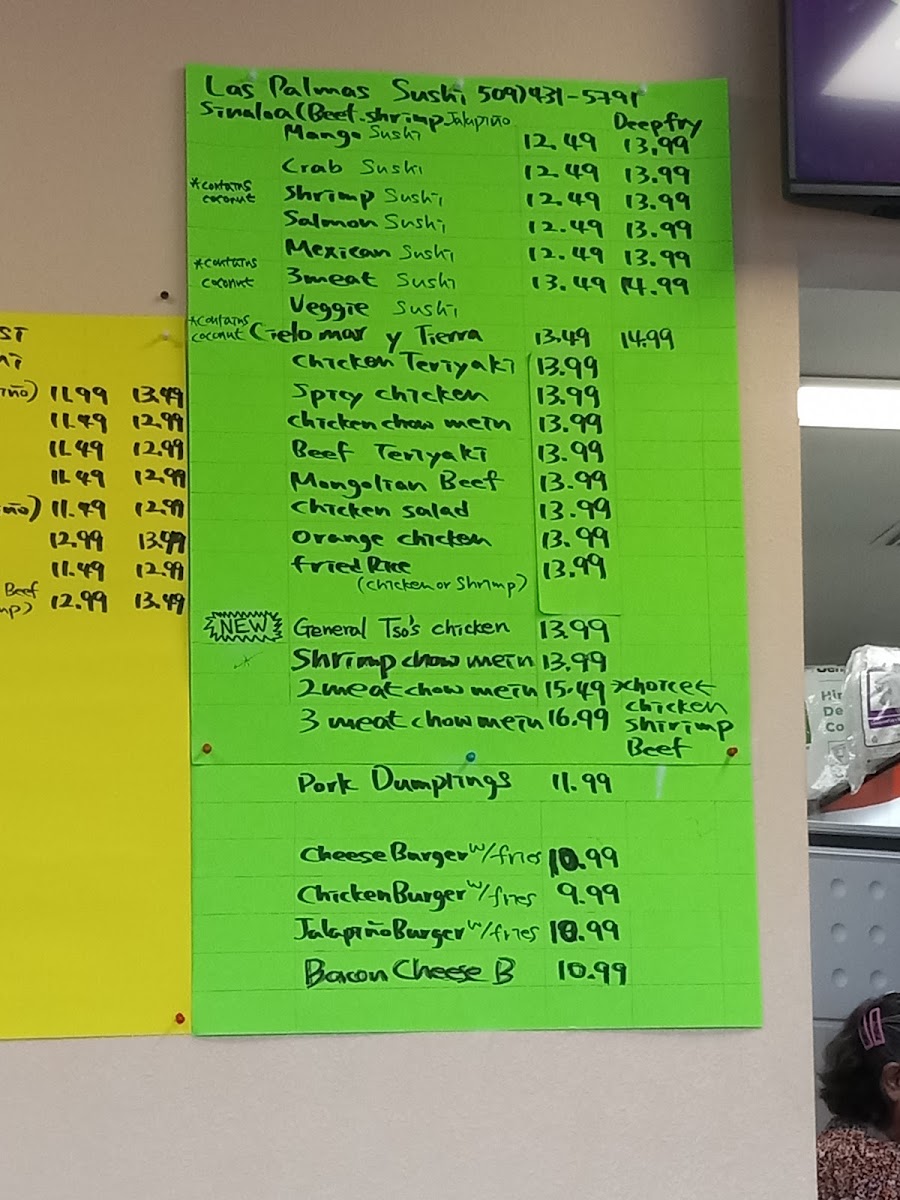 Las Palmas Sushi 509)431-5791
Sinaloa(Beef.shrimp Jalapiño
Deepfry
Mango Sushi 12.49 13.99
Crab Sushi 12.49 13.99
*contains coconut Shrimp Sushi 12.49 13.99
Salmon Sushi 12.49 13.99
Mexican Sushi 12.49 13.99
*contains coconut 3meat Sushi 13.49 14.99
Veggie Sushi
*contains coconut Cielo mar y Tierra 13.49 14.99
Chicken Teriyaki 13.99
Spicy chicken 13.99
chicken chow mein 13.99
Beef Teriyaki 13.99
Mongolian Beef 13.99
chicken salad 13.99
orange chicken 13.99
fried Rice 13.99
(chicken or Shrimp)
NEW General Tso's chicken 13.99
Shrimp chow mein 13.99
2meat chow mein 15.49
3 meat chow mein 16.99
chicken
shirimp
Beef
Pork Dumplings 11.99
Cheese Burger w/fries 10.99
Chicken Burger w/fries 9.99
Jalapiño Burger w/fries 10.99
Bacon Cheese B 10.99
ST
iño) 11.99 13.49
11.49 12.99
11.49 12.99
11.49 12.99
iño) 11.49 12.99
12.99 13.99
11.49 12.99
Beef
mp) 12.99 13.49
Hir
De
Co